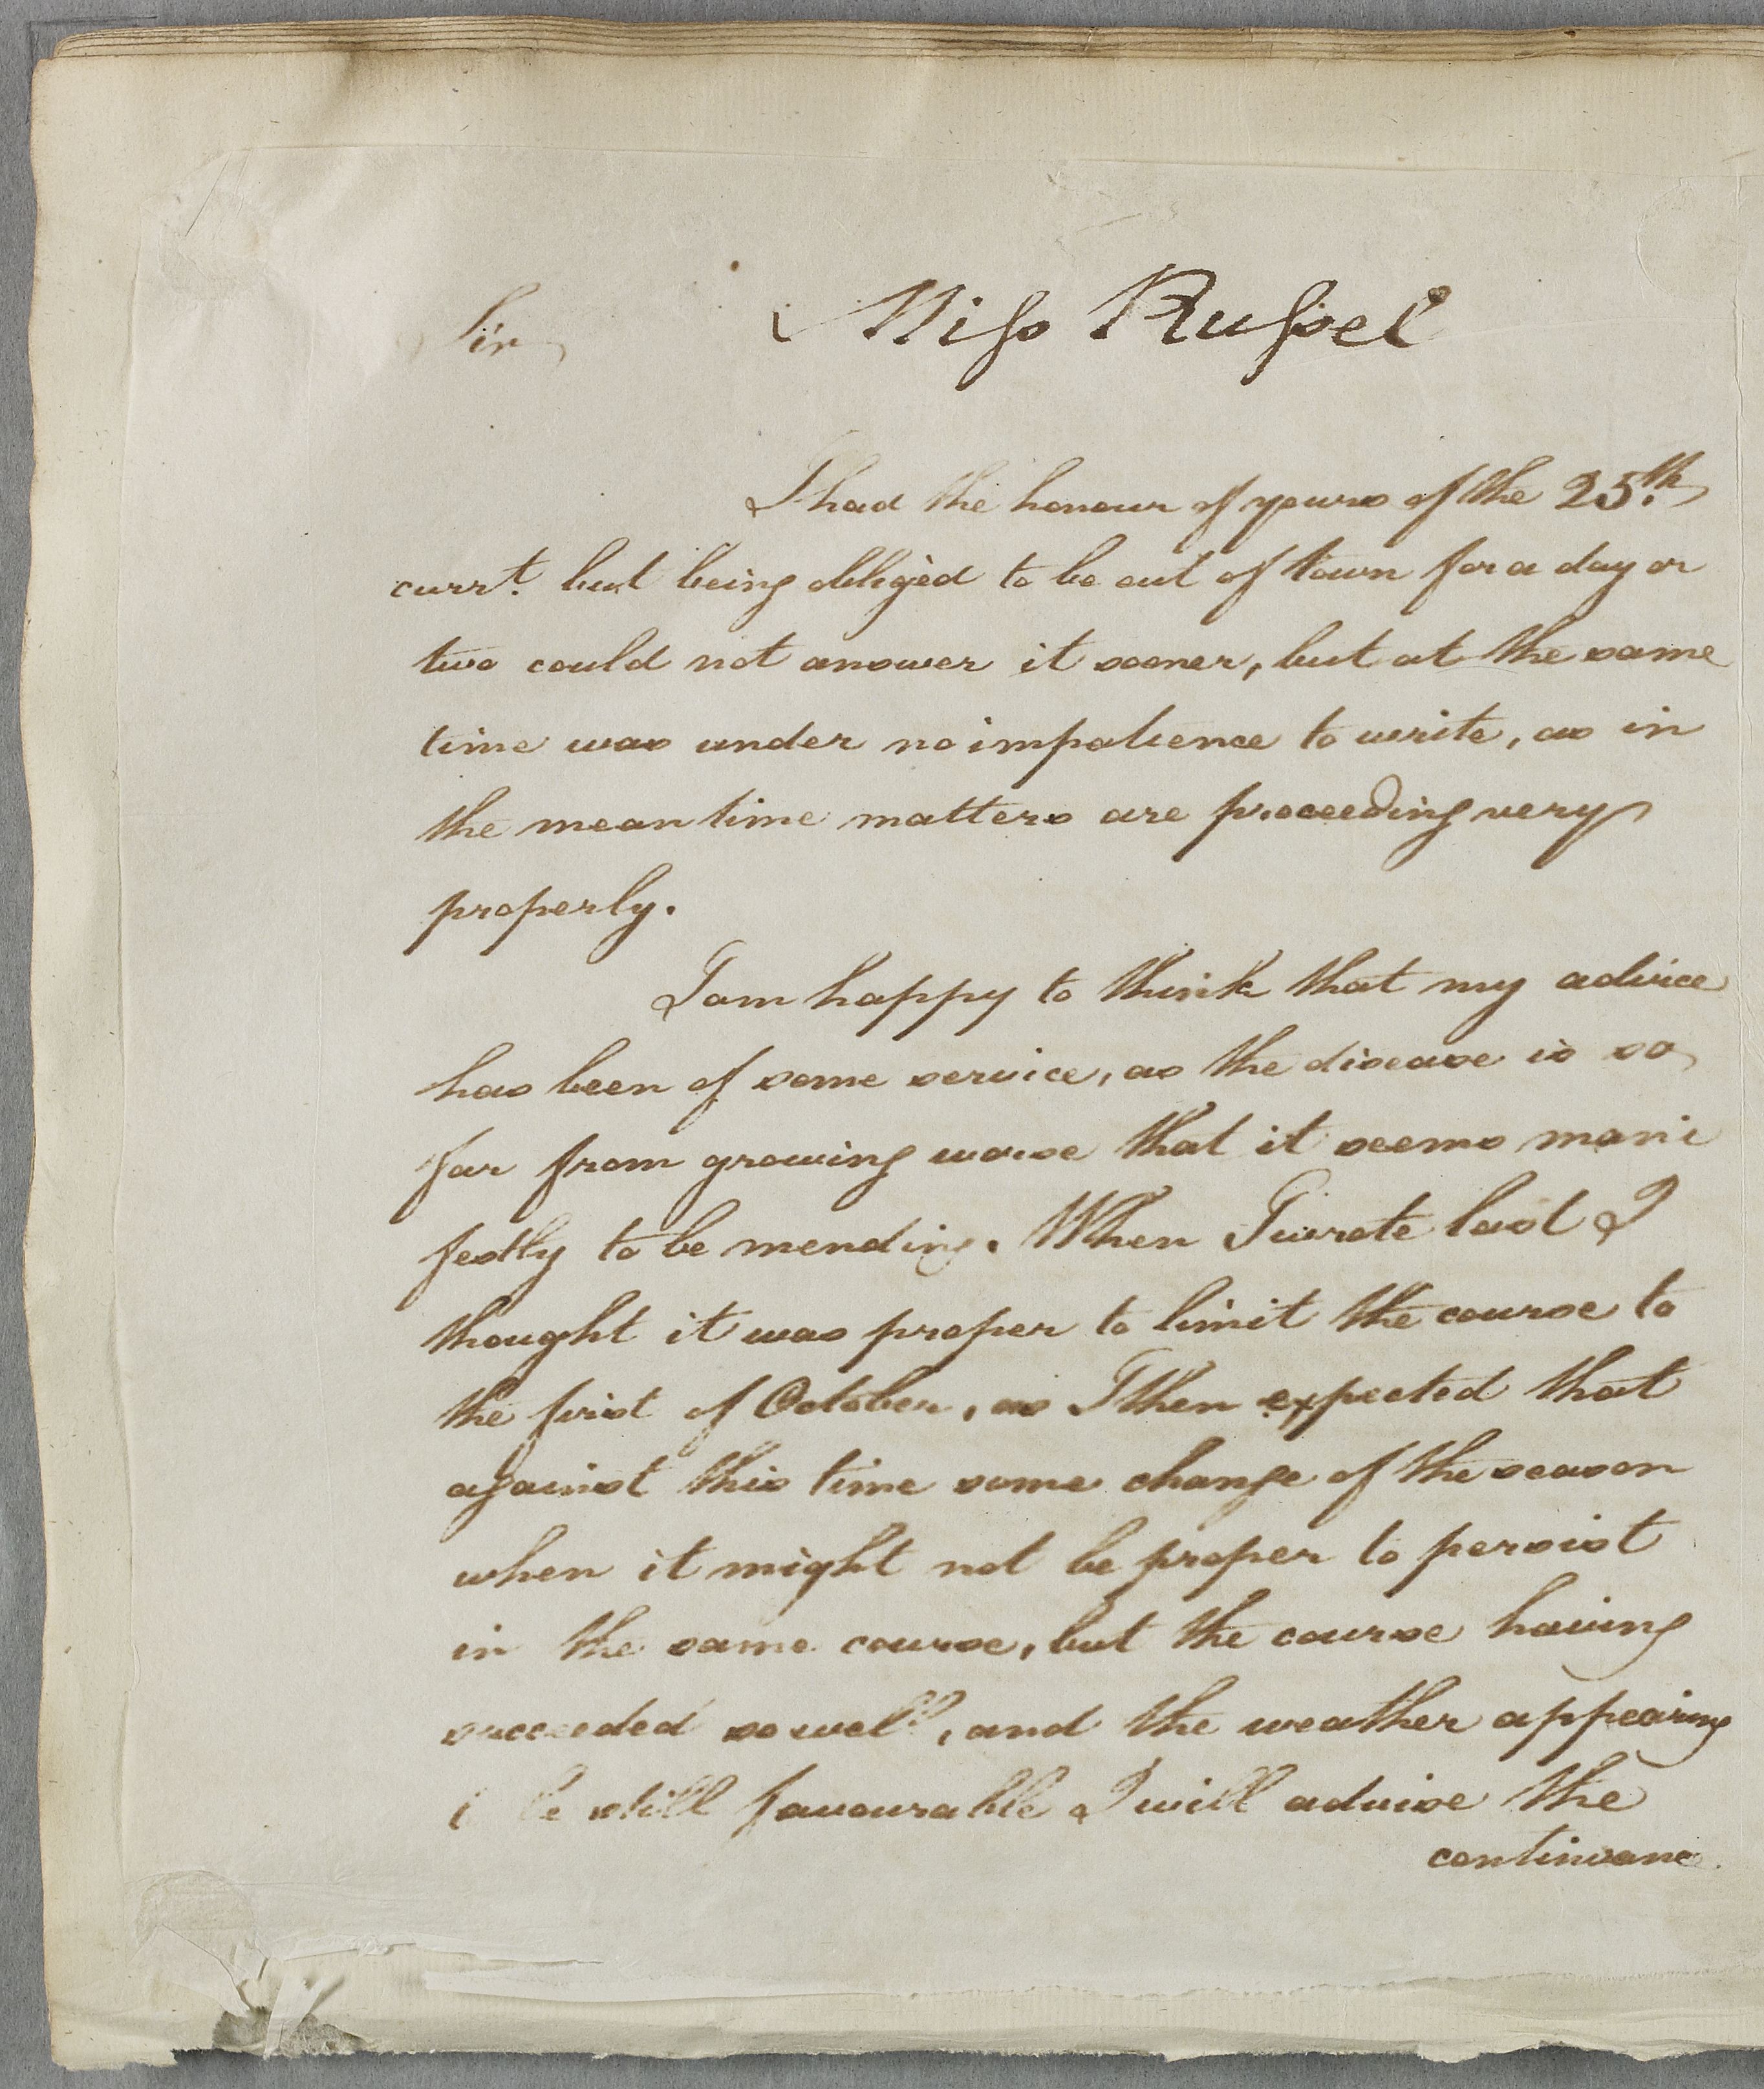 Miss Russel
Sir,
I had the honour of yours of the 25th.
currt. but being obliged to be out of town for a day or
two could not answer it sooner, but at the same
time was under no impatience to write, as in
the mean time matters are proceeding very
properly.
I am happy to think that my advice
has been of some service, as the disease is so
far from growing worse that it seems mani
festly to be mending. When I wrote last I
thought it was proper to limit the course to
the first of October, as I then expected that
against this time some change of the season
when it might not be proper to persist
in the same course, but the course having
succeeded so well, and the weather appearing
be still favourable I will advise the
continuance